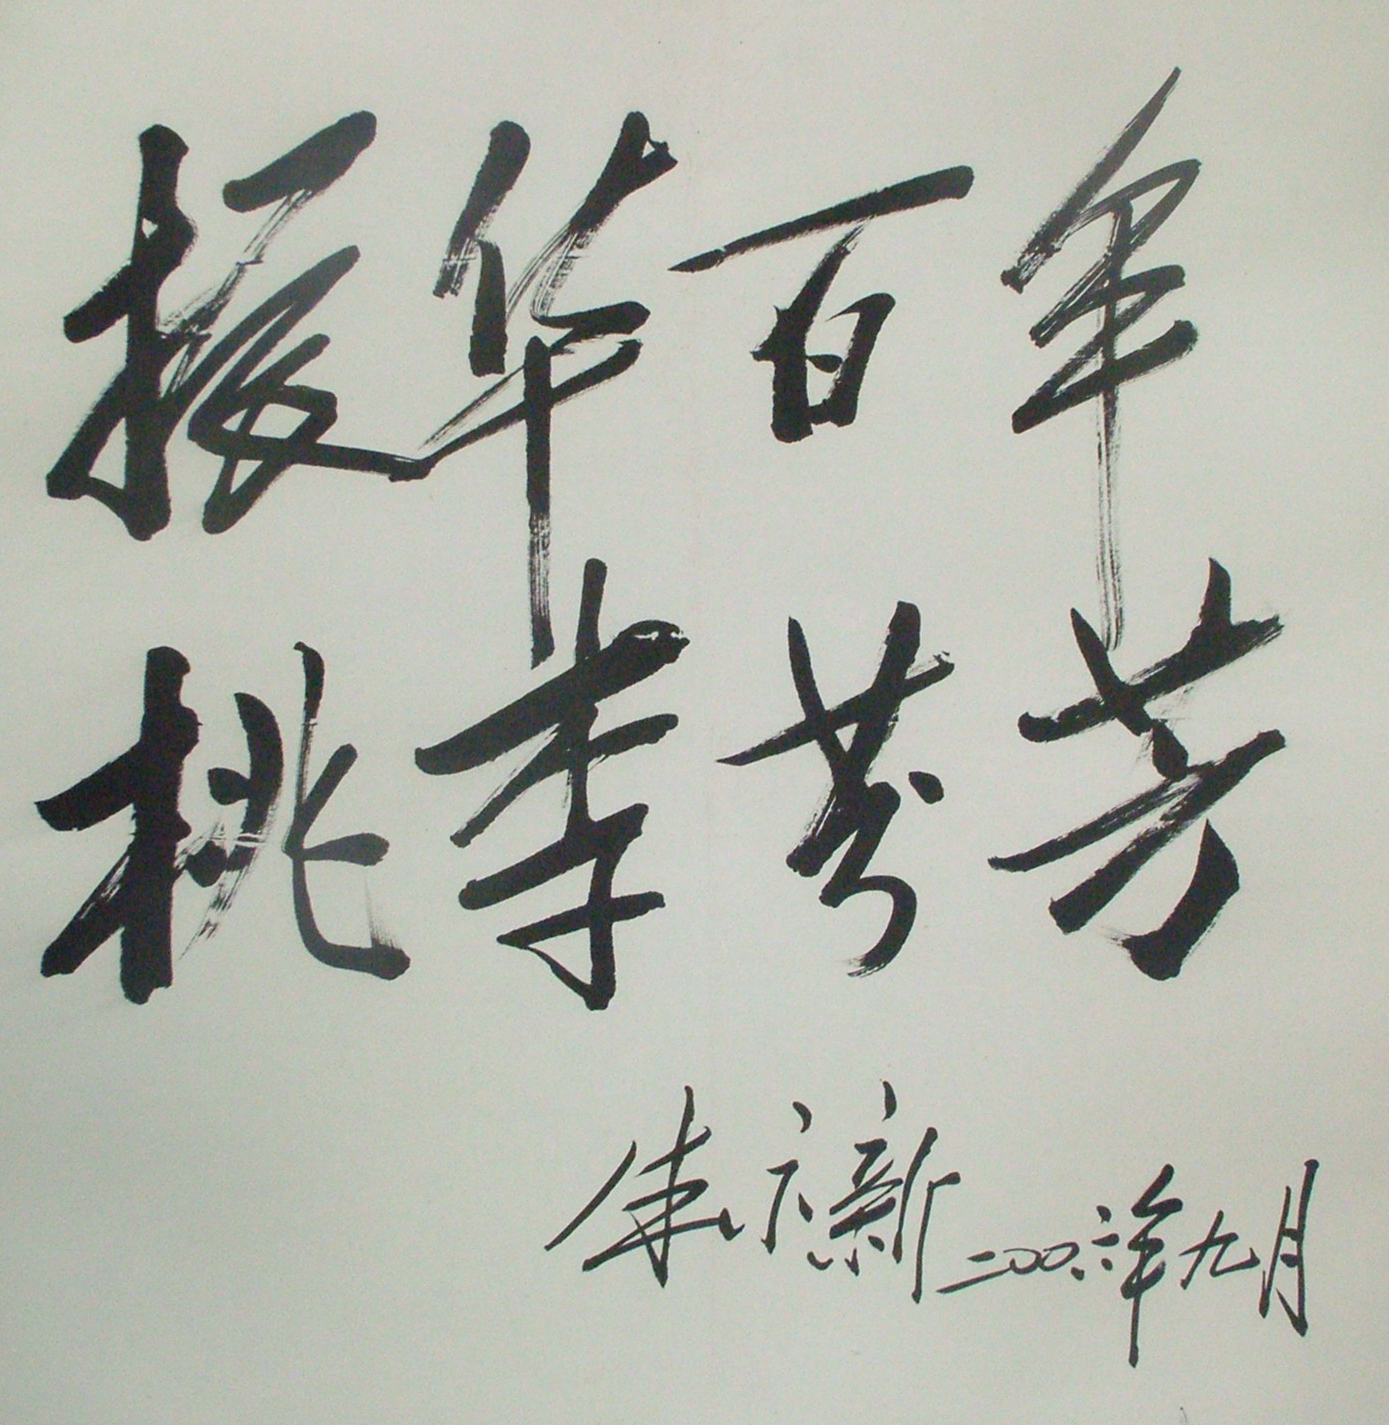 振华百年
桃李芬芳
朱永新 二〇〇六年九月